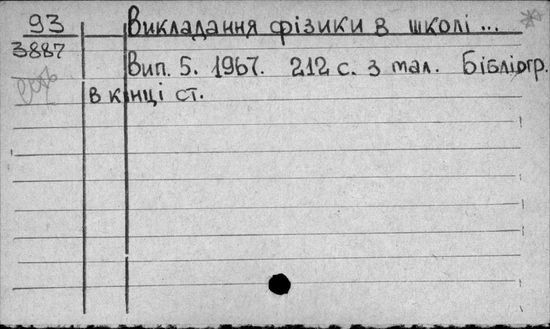 93 Викладання фізики в школі...
3887
Вип. 5. 1967. 212 с. з мал. Бібліогр.
в кінці ст.